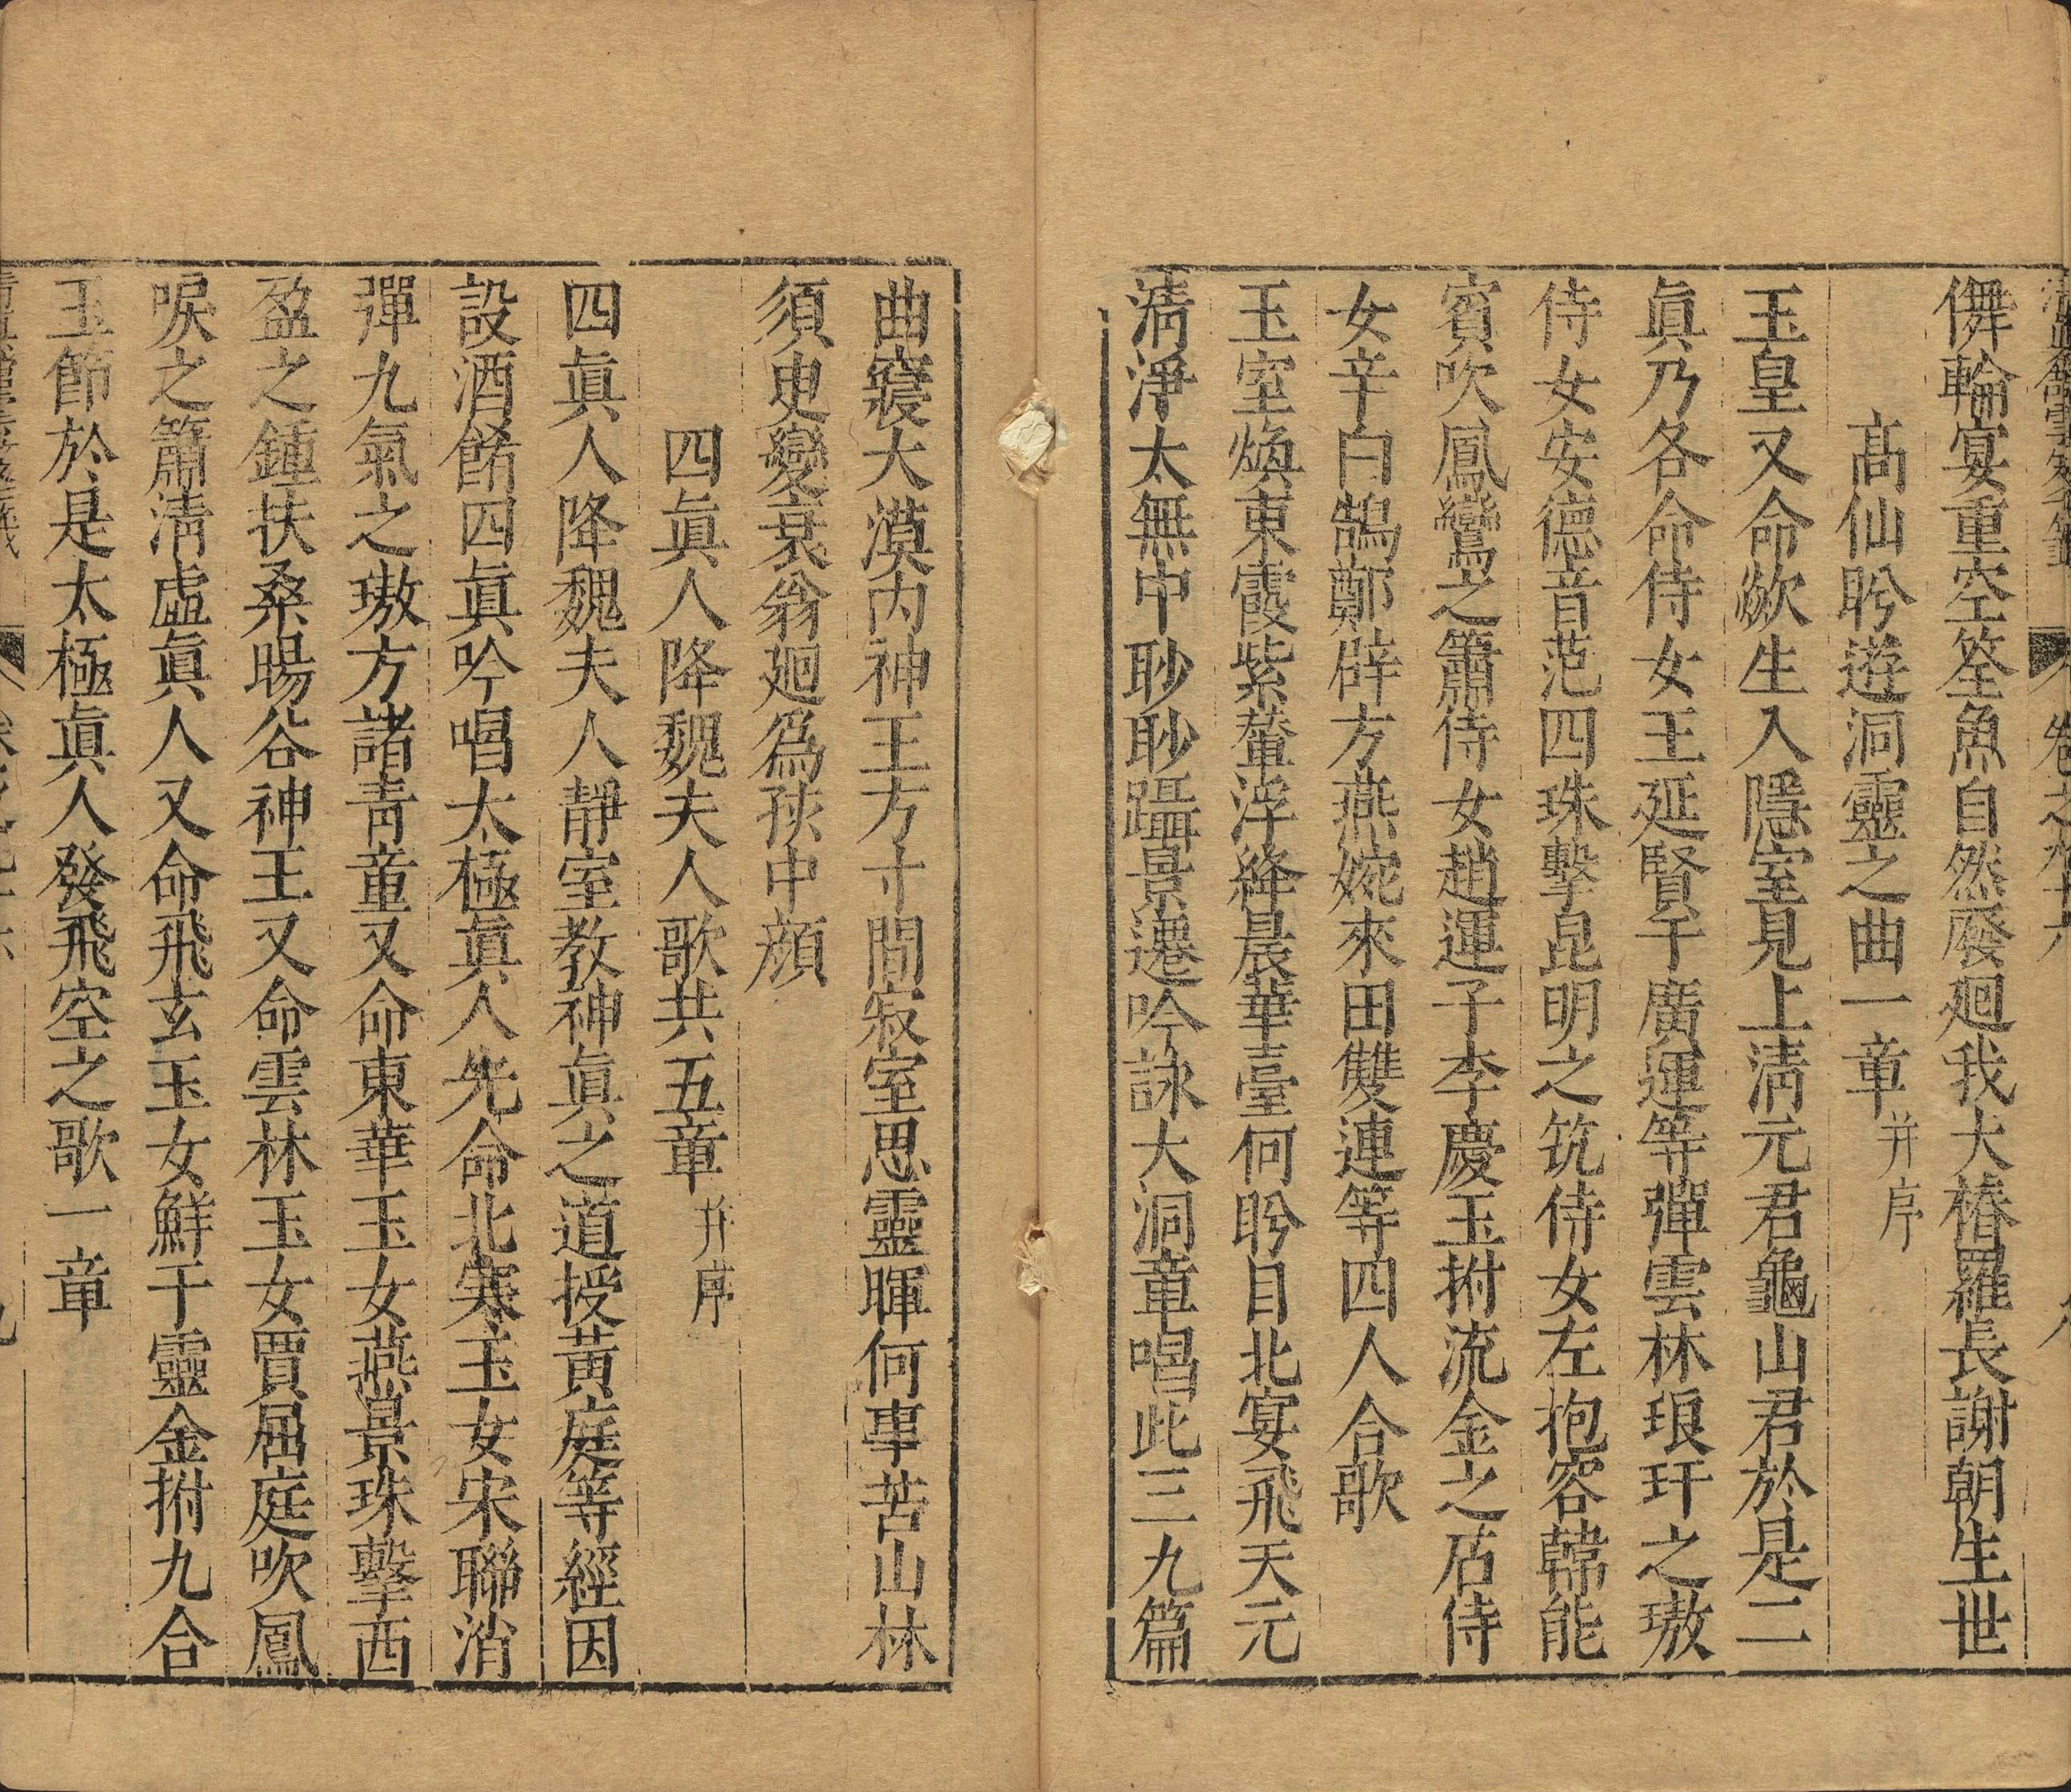 儛輪宴重空筌魚自然廢廻我大椿羅長謝朝生世
高仙盻遊洞靈之曲一章并序
玉皇又命歘生入隱室見上清元君龜山君於是二
眞乃各命侍女王延賢于廣運等彈雲林琅玕之璈
侍女安德音范四珠擊昆明之筑侍女左抱容韓能
賓吹鳳鸞之簫侍女趙運子李慶玉拊流金之石侍
女辛白鵠鄭辟方燕婉來田雙連等四人合歌
玉室煥東霞紫輦浮絳晨華臺何盻目北宴飛天元
清淨太無中眇眇躡景遷吟詠大洞章唱此三九篇
曲寢大漠內神王方寸間寂室思靈暉何事苦山林
須臾變衰翁廻爲孩中顔
四眞人降魏夫人歌共五章并序
四眞人降魏夫人靜室教神眞之道授黃庭等經因
設酒餚四眞吟唱太極眞人先命北寒玉女宋聯消
彈九氣之璈方諸青童又命東華玉女燕景珠擊西
盈之鍾扶桑暘谷神王又命雲林玉女賈屈庭吹鳳
唳之簫清虛眞人又命飛玄玉女鮮于靈金拊九合
玉節於是太極眞人發飛空之歌一章